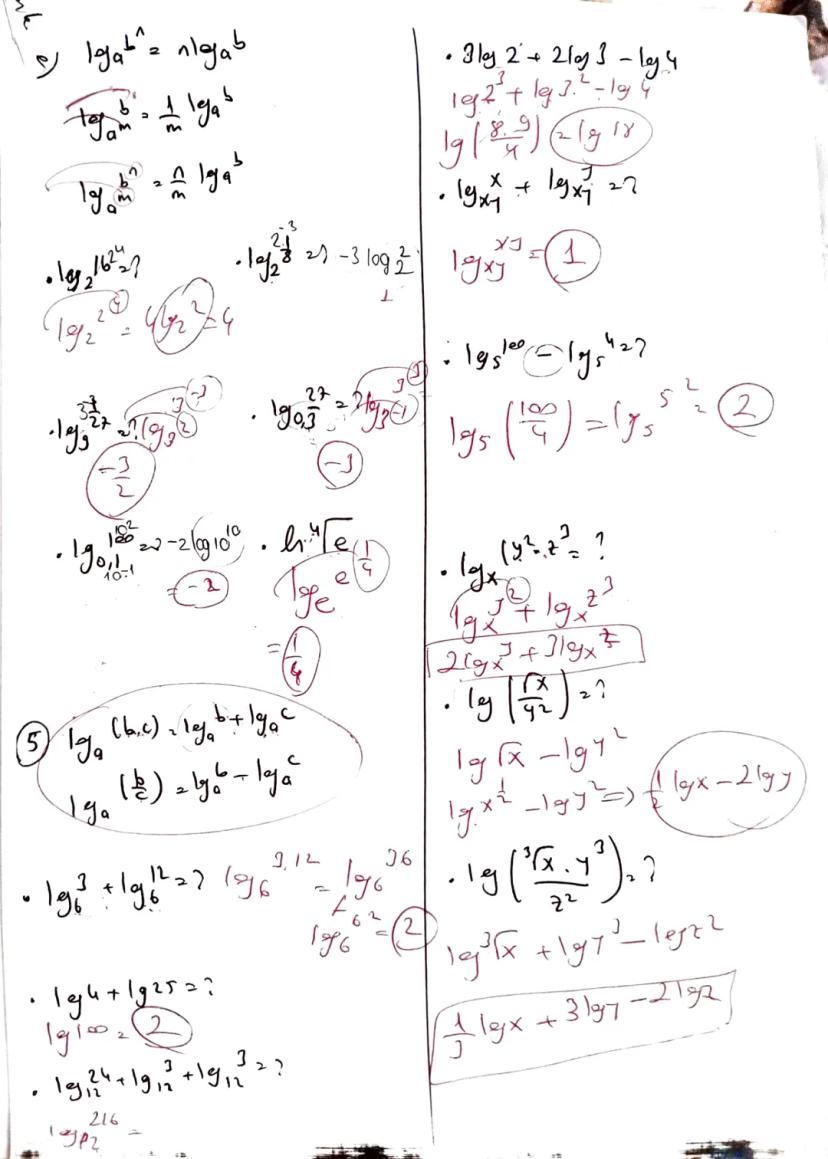 e) log_a b^n = n log_a b
log_{a^m} b = 1/m log_a b
log_{a^m} b^n = n/m log_a b
• log_2 16 = ?
log_2 2^4 = 4 log_2 2 = 4
• log_2 1/8 = ? -3 log_2 2
1
• log_9 1/27 = ? log_{3^2} 3^{-3}
-3/2
• log_{0,3} 27 = ? log_{3^{-1}} 3^3
-3
• log_{0,1} 100 = ? -2 log 10
10^{-1}
= -2
• ln ⁴√e
log_e e^{1/4}
= 1/4
5 log_a (b.c) = log_a b + log_a c
log_a (b/c) = log_a b - log_a c
• log_6 3 + log_6 12 = ? log_6 3.12 = log_6 36
log_6 6^2 = 2
• log 4 + lg 25 = ?
lg 100 = 2
• log_12 24 + lg_12 3 + lg_12 3 = ?
log_12 216 =
• 3lg 2 + 2lg 3 - lg 4
lg 2^3 + lg 3^2 - lg 4
lg (8.9/4) = lg 18
• log_{xy} x + log_{xy} y = ?
log_{xy} xy = 1
• log_5 100 - log_5 4 = ?
log_5 (100/4) = log_5 5^2 = 2
• log_x (y^2.z^3 = ?
log_x y^2 + log_x z^3
2 log_x y + 3 log_x z
• lg (√x/y^2) = ?
lg √x - lg y^2
lg x^{1/2} - lg y^2 => 1/2 lg x - 2 lg y
• lg (³√x . y^3 / z^2) = ?
log ³√x + lg y^3 - log z^2
1/3 lg x + 3 lg y - 2 lg z